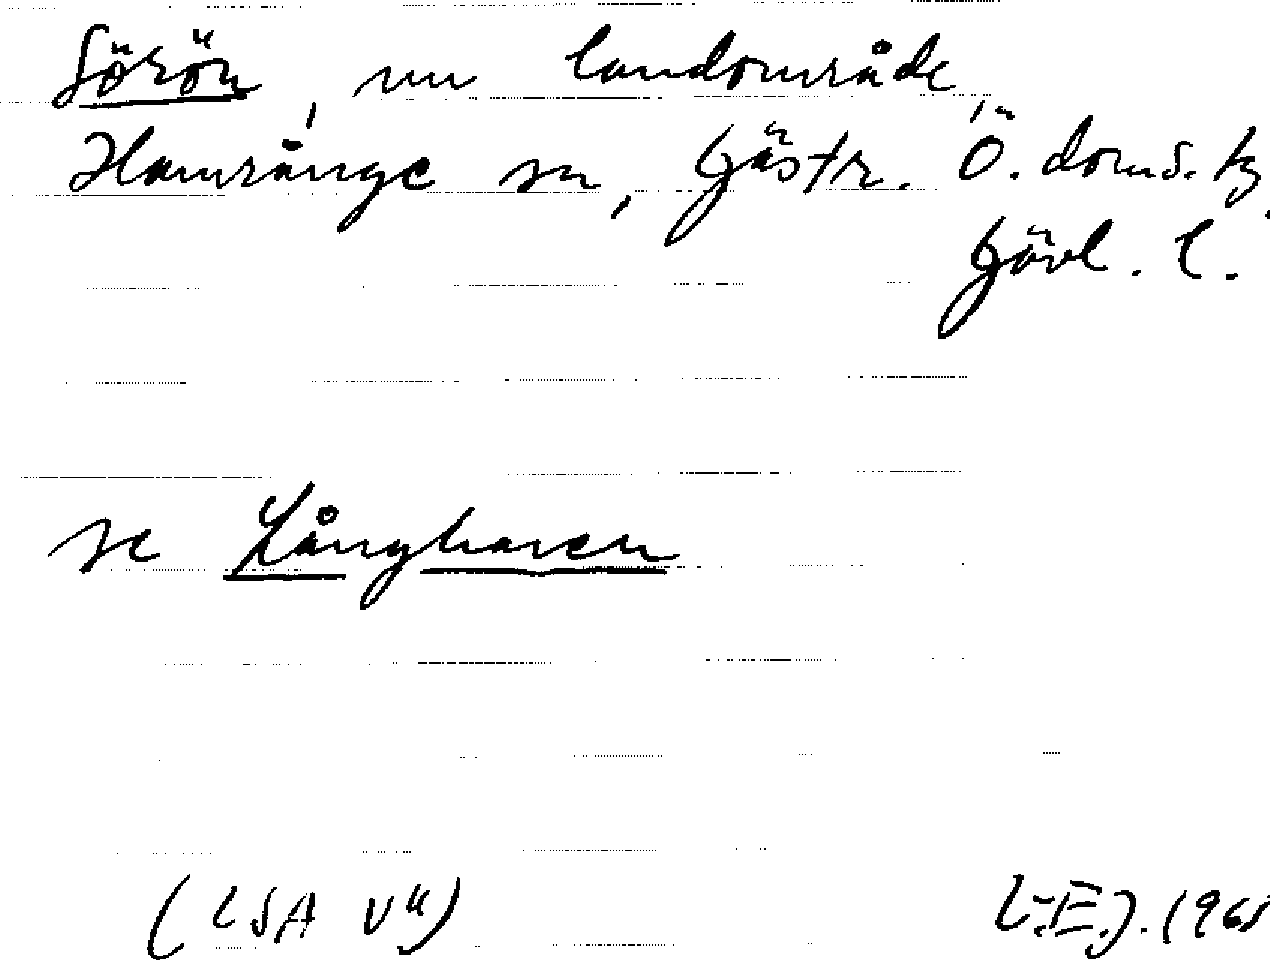 Sörön, nu landområde,
Hamrånge sn, Gästr. Ö. doms. tg,
Gävl. l.
se Långharen
(LSA V")
L-E.J. 196